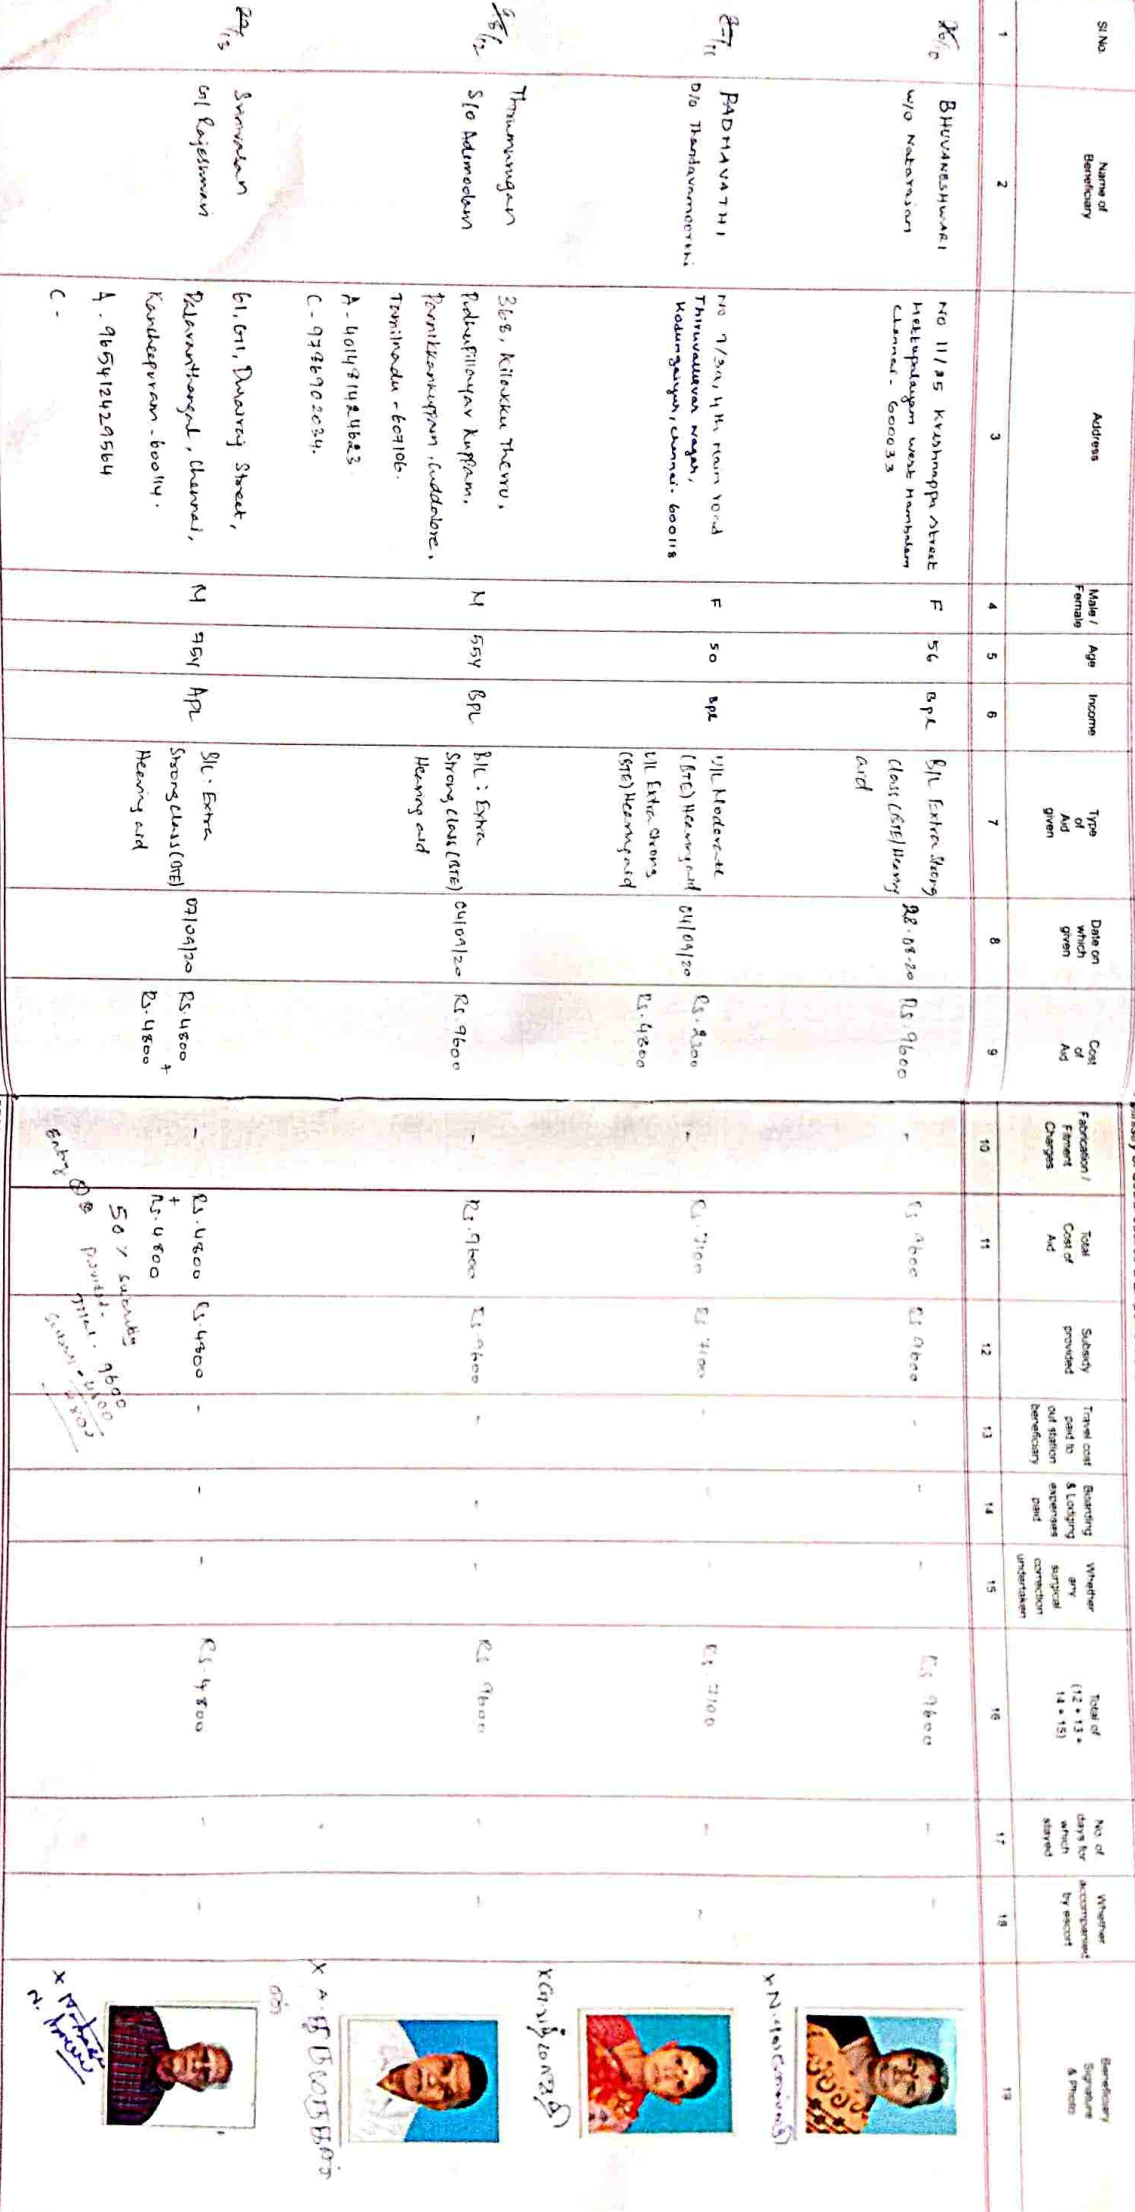 Sl No.
Name of
Beneficiary
Address
Male /
Female
Age
Income
Type
of
Aid
given
Date on
which
given
Cost
of
Aid
Fabrication /
Fitment
Charges
Total
Cost of
Aid
Subsidy
provided
Travel cost
paid to
out station
beneficiary
Boarding
& Lodging
expenses
paid
Whether
any
surgical
correction
undertaken
Total of
(12 + 13 +
14 + 15)
No. of
days for
which
stayed
Whether
accompanied
by escort
Beneficiary
Signature
& Photo
1 2 3 4 5 6 7 8 9 10 11 12 13 14 15 16 17 18 19
BHUVANESHWARI
W/O Natarajan
No 11/25 Krishnappa street
Mettupalayam West Mambalam
Chennai - 600033
F
56
Bpl
B/L Extra Strong
Class (BTE) Hearing
aid
28-08-20
Rs. 9600
-
Rs 9600
Rs 9600
-
-
-
Rs 9600
-
-
PADMAVATHI
D/O Thandavamoorthi
4th Main road
Thiruvalluvar Nagar,
Kodungaiyur, Chennai - 600118
F
50
Bpl
U/L Moderate
(BTE) Hearing aid
U/L Extra Strong
(BTE) Hearing aid
04/09/20
Rs. 2300
Rs. 4800
-
Rs. 7100
Rs 7100
-
-
-
Rs. 7100
-
-
Thirumurugan
S/O Adimoolam
368, Kilakku Theru,
Pudhupillaiyar Kuppam,
Cuddalore,
Tamilnadu - 607106.
A - 401491424623.
C - 9786902034.
M
55Y
BPL
B/L : Extra
Strong class (BTE)
Hearing aid
04/09/20
Rs. 9600
-
Rs. 9600
Rs. 9600
-
-
-
Rs 9600
-
-
Srinivasan
G/ Rajeswari
61, G1, Durairaj Street,
Palavanthangal, Chennai,
Kancheepuram - 600114.
A - 965412429564
C -
M
75Y
APL
B/L : Extra
Strong class (BTE)
Hearing aid
07/09/20
Rs. 4800 +
Rs. 4800
-
Rs. 4800
+
Rs. 4800
Rs. 4800
-
-
-
Rs. 4800
-
-
50 % subsidy
provided.
Total - 9600
4800
4800